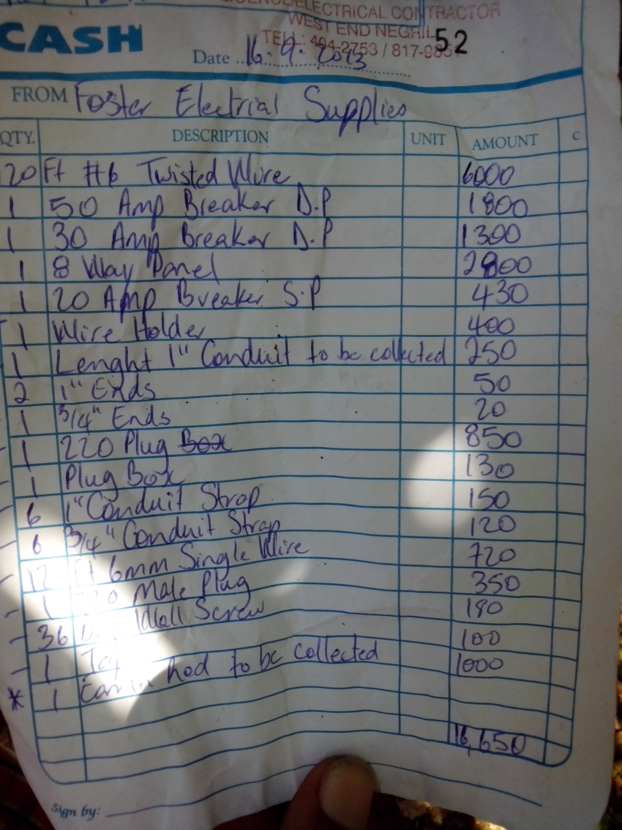 ELECTRICAL CONTRACTOR
WEST END NEGRIL
CASH
52
Date 16.9.2013
FROM Foster Electrial Supplies
QTY. DESCRIPTION UNIT AMOUNT C
20 Ft #6 Twisted Wire 6000
1 50 Amp Breaker D.P 1800
1 30 Amp Breaker D.P 1300
1 8 Way Panel 2800
1 20 Amp Breaker S.P 430
1 Wire Holder 400
1 Lenght 1" Conduit to be collected 250
2 1" Ends 50
1 3/4" Ends 20
1 220 Plug Box 850
1 Plug Box 130
6 1" Conduit Strap 150
6 3/4" Conduit Strap 120
12 Ft 6mm Single Wire 720
1 Male Plug 350
36 Wall Screw 180
1 100
1 hod to be collected 1000
16,650
Sign by: